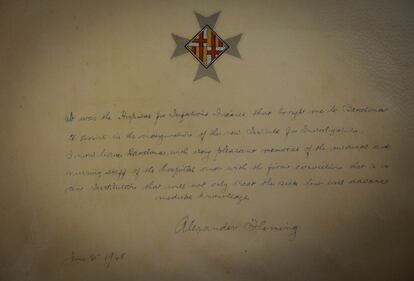 It was the Hospital for Infectious Disease that brought me to Barcelona
to assist in the inauguration of the new Institute for Investigation.
I now leave Barcelona with very pleasant memories of the medical and
nursing staff of the hospital and with the firm conviction that it is
an Institution that will not only treat the sick but will advance
medical knowledge
Alexander Fleming
June 1948